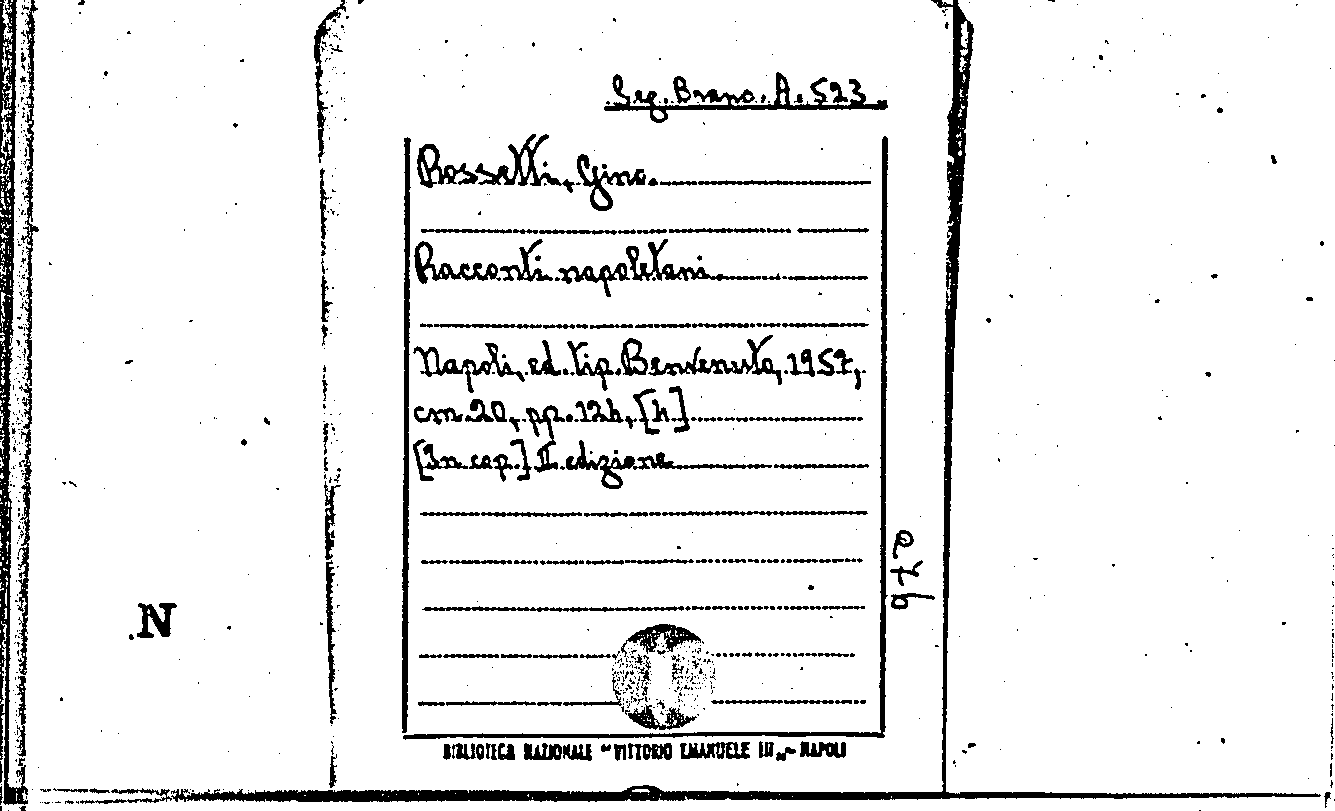 Seg. Branc. A. 523
Rossetti, Gino.
Racconti napoletani.
Napoli, ed. tip. Benvenuto, 1957,
cm. 20, pp. 124, [4]
[In cop.] II edizione
970
N
BIBLIOTECA NAZIONALE "VITTORIO EMANUELE III„ - NAPOLI